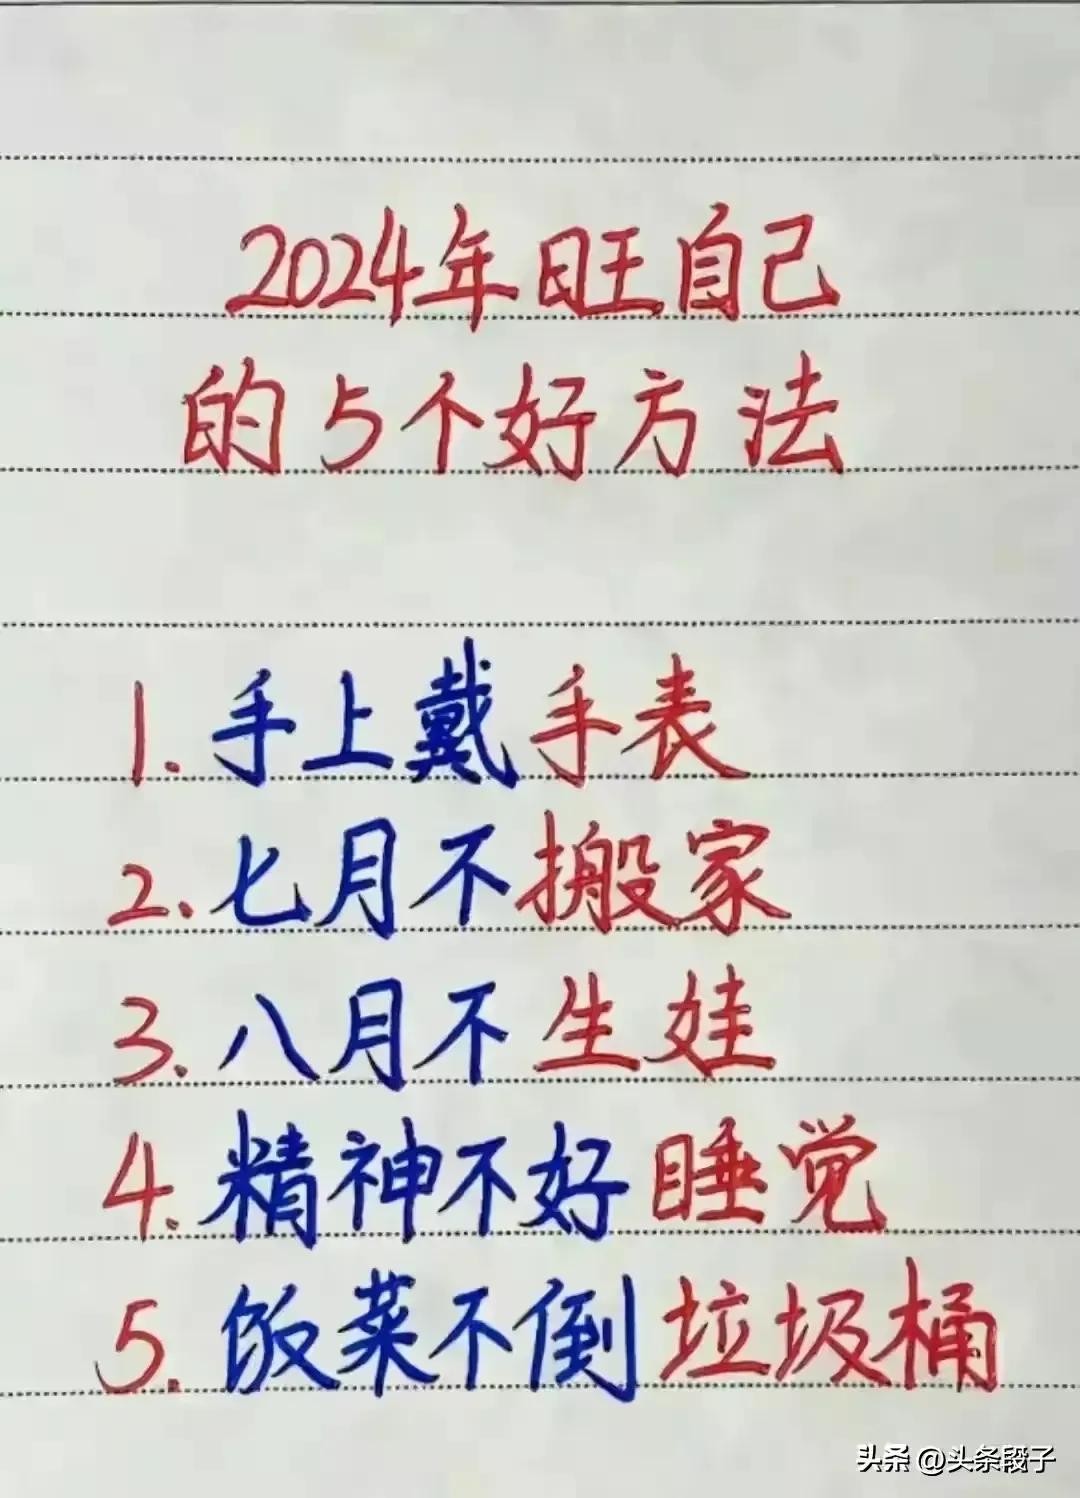 2024年旺自己
的5个好方法
1.手上戴手表
2.七月不搬家
3.八月不生娃
4.精神不好睡觉
5.饭菜不倒垃圾桶
头条 @头条段子